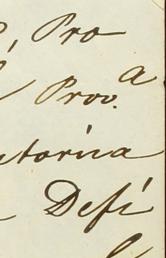 , Pro
Prov.ª
utorina
Defi